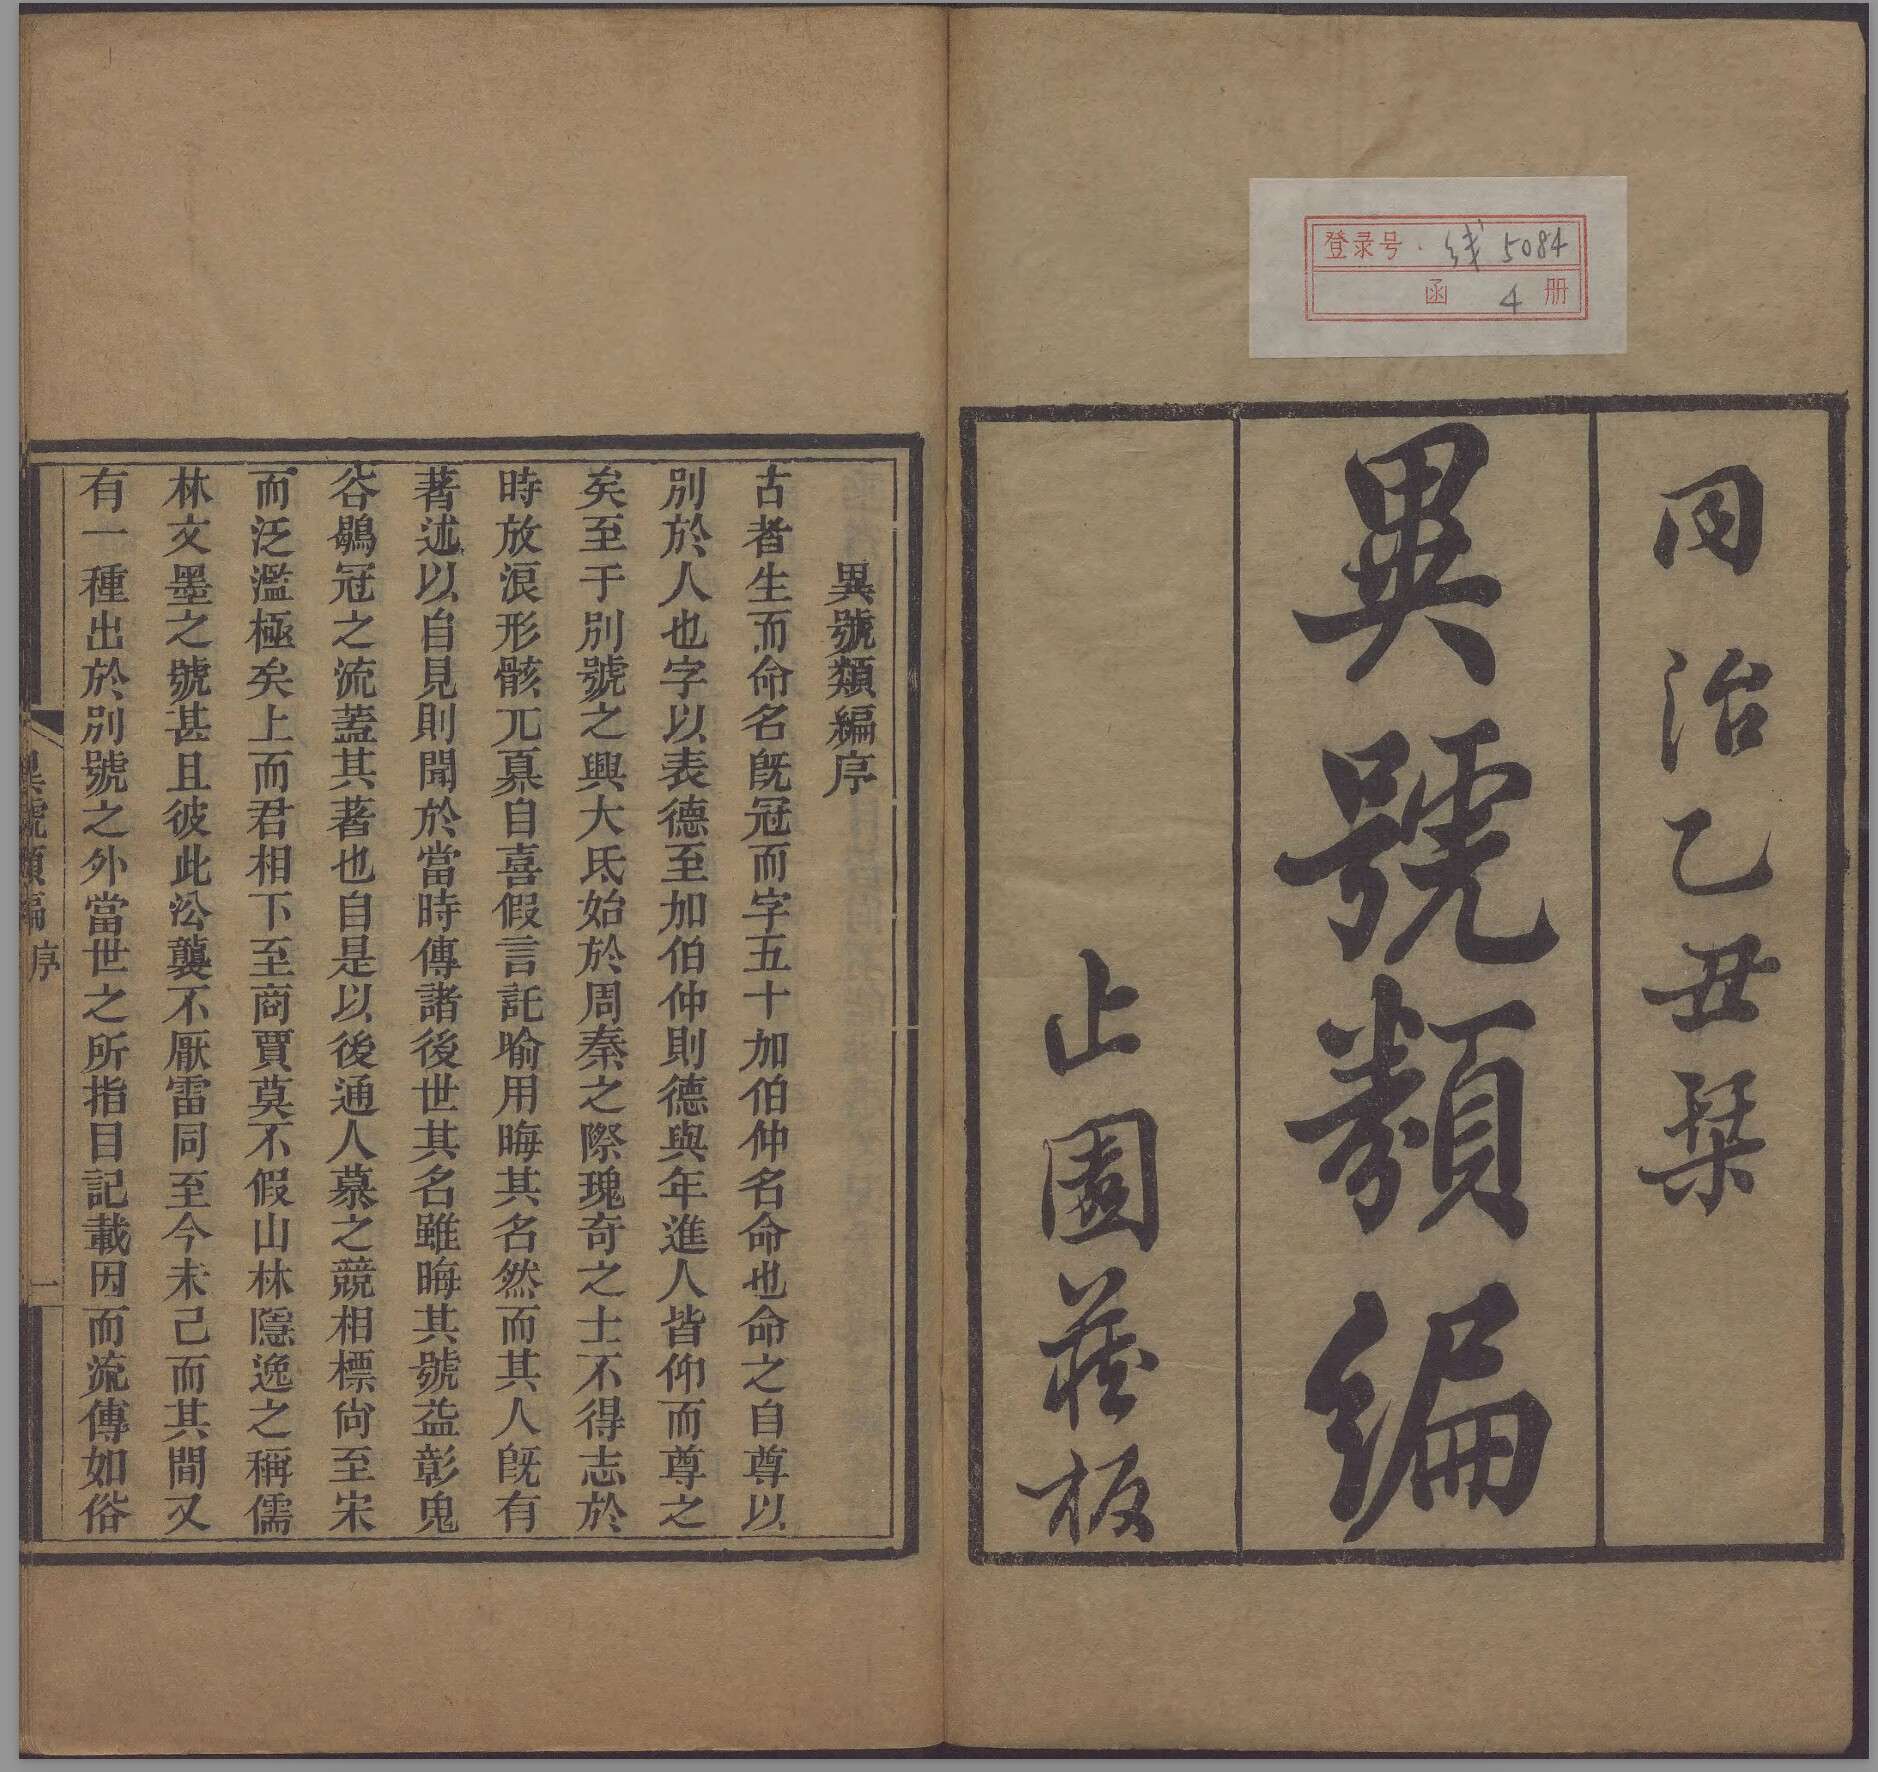 登录号 线5084
函 4 册
同治乙丑栞
異號類編
止園藏板
異號類編序
古者生而命名旣冠而字五十加伯仲名命也命之自尊以
別於人也字以表德至加伯仲則德與年進人皆仰而尊之
矣至于別號之興大氐始於周秦之際瑰奇之士不得志於
時放浪形骸兀㬥自喜假言託喻用晦其名然而其人旣有
著述以自見則聞於當時傳諸後世其名雖晦其號益彰鬼
谷鶡冠之流蓋其著也自是以後通人慕之競相標尙至宋
而泛濫極矣上而君相下至商賈莫不假山林隱逸之稱儒
林文墨之號甚且彼此沿襲不厭雷同至今未已而其間又
有一種出於別號之外當世之所指目記載因而流傳如俗
異號類編 序 一